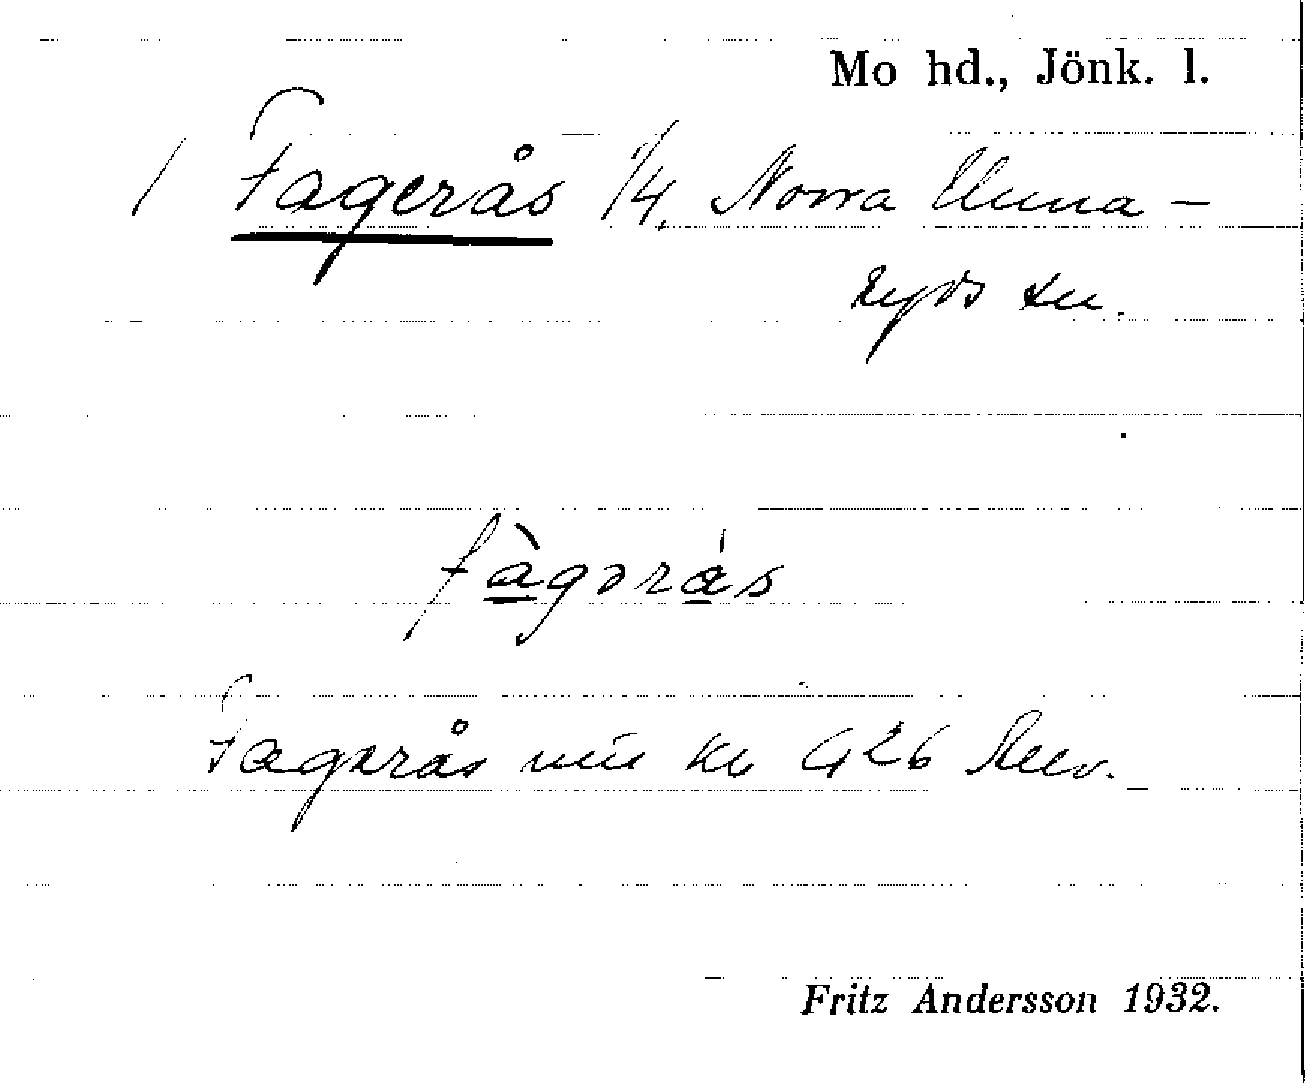 Mo hd., Jönk. l.
/ Fagerås 1/4. Norra Unna-
ryds sn.
fàgərás
Fagerås 426
Fritz Andersson 1932.